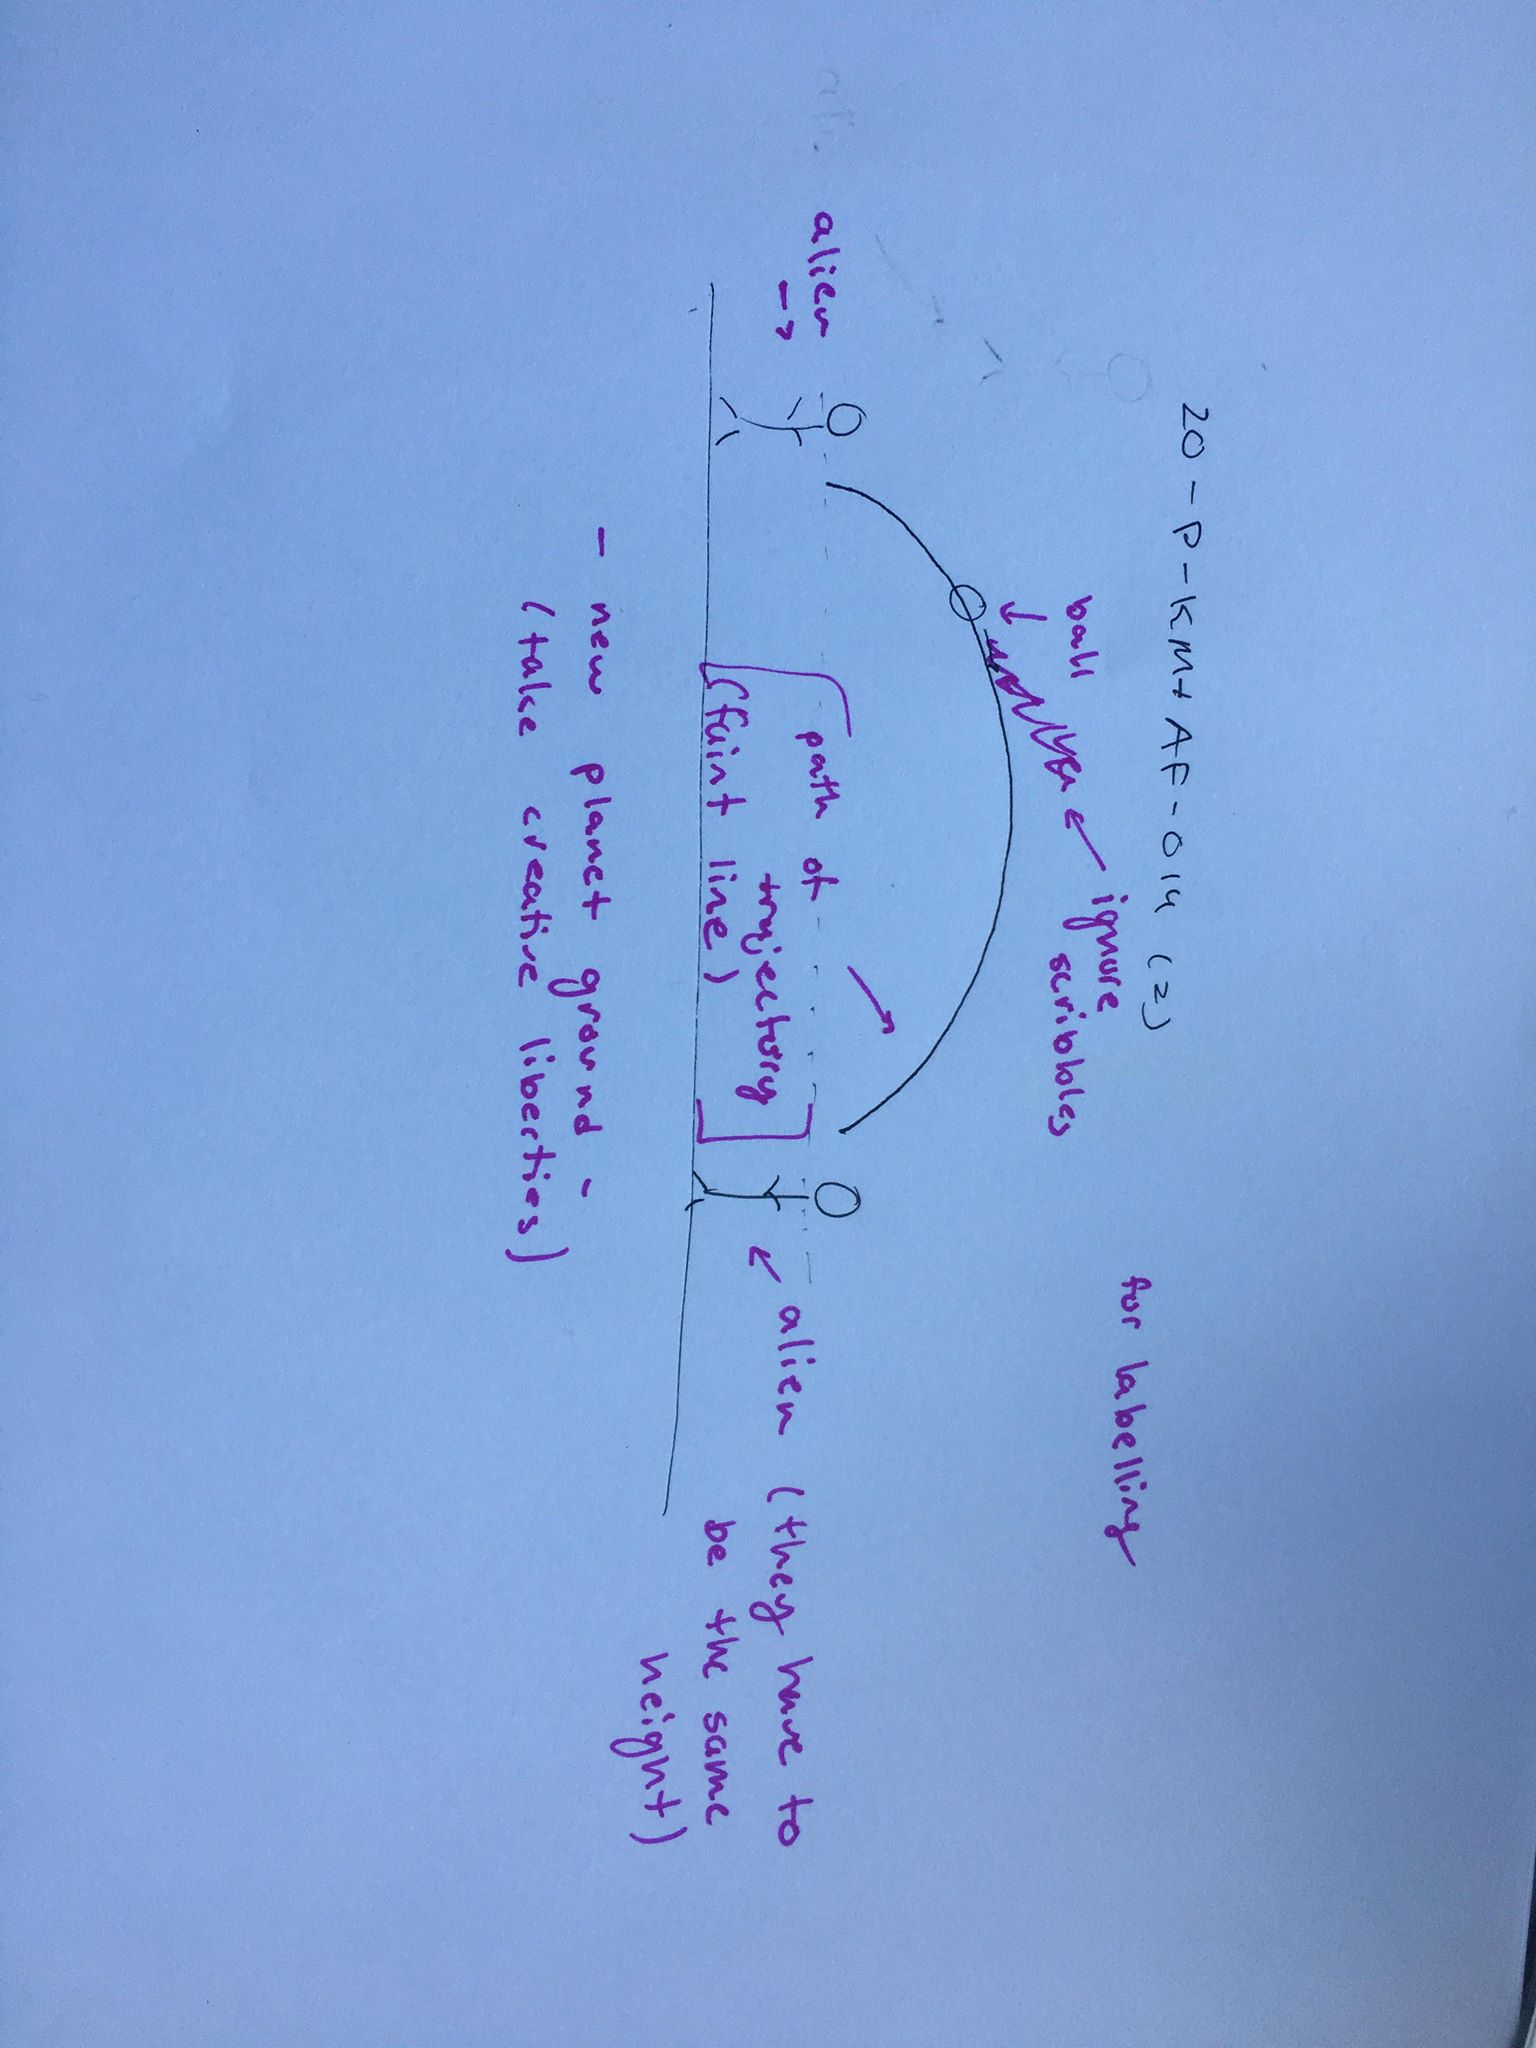 20-P-KM+AF-014 (2)
for labelling
ignore
scribbles
ball
alien
path of
trajectory
(faint line)
alien (they have to
be the same
height)
- new planet ground -
(take creative liberties)